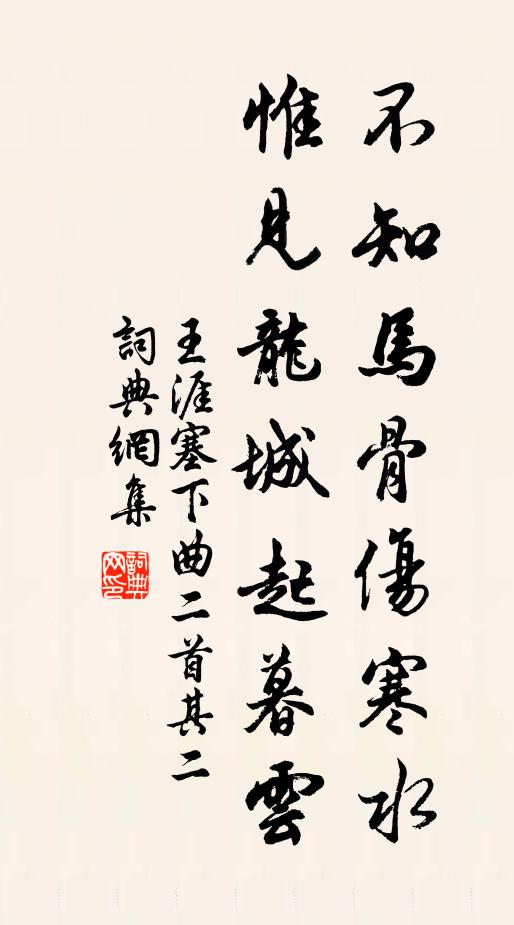 不知馬骨傷寒水
惟見龍城起暮雲
王涯塞下曲二首其二
詞典網集
詞典網印